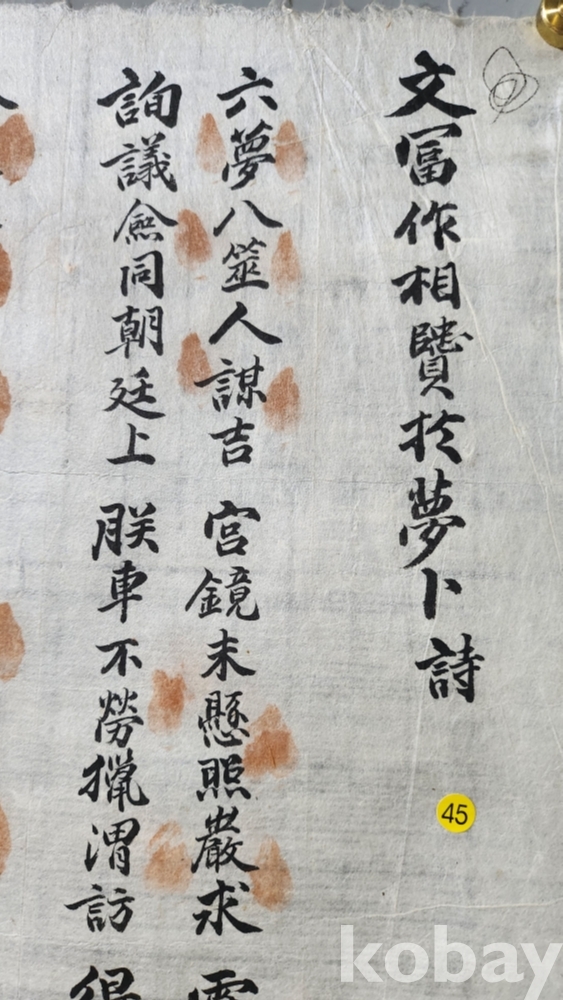 文冨作相贒於夢卜詩
45
六夢八筮人謀吉 宮鏡未懸照巖求
詢議僉同朝廷上 朕車不勞獵渭訪
kobay